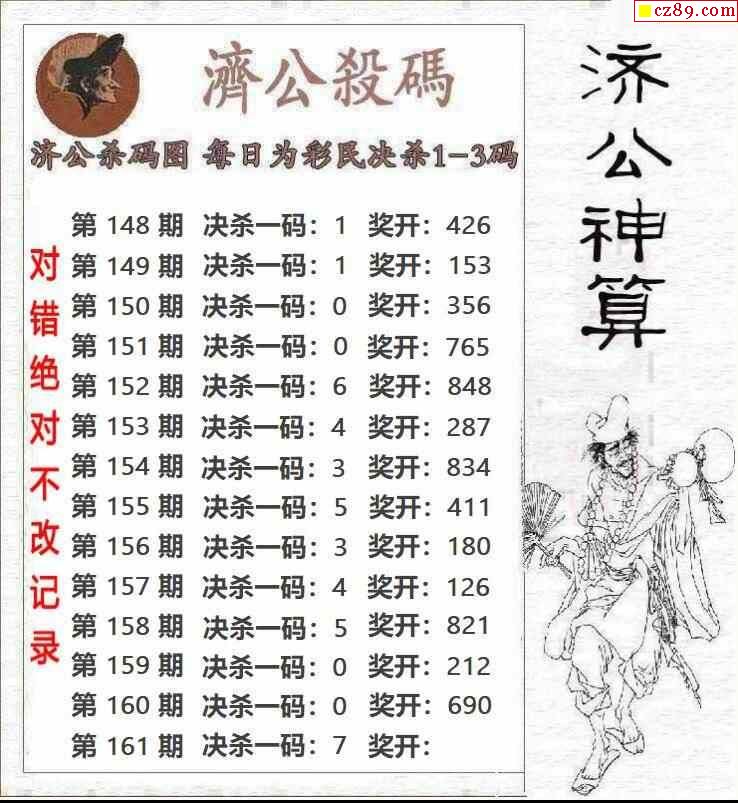 cz89.com
濟公殺碼
济公杀码图 每日为彩民决杀1-3码
第 148 期 决杀一码：1 奖开：426
第 149 期 决杀一码：1 奖开：153
第 150 期 决杀一码：0 奖开：356
第 151 期 决杀一码：0 奖开：765
第 152 期 决杀一码：6 奖开：848
第 153 期 决杀一码：4 奖开：287
第 154 期 决杀一码：3 奖开：834
第 155 期 决杀一码：5 奖开：411
第 156 期 决杀一码：3 奖开：180
第 157 期 决杀一码：4 奖开：126
第 158 期 决杀一码：5 奖开：821
第 159 期 决杀一码：0 奖开：212
第 160 期 决杀一码：0 奖开：690
第 161 期 决杀一码：7 奖开：
对错绝对不改记录
济公神算